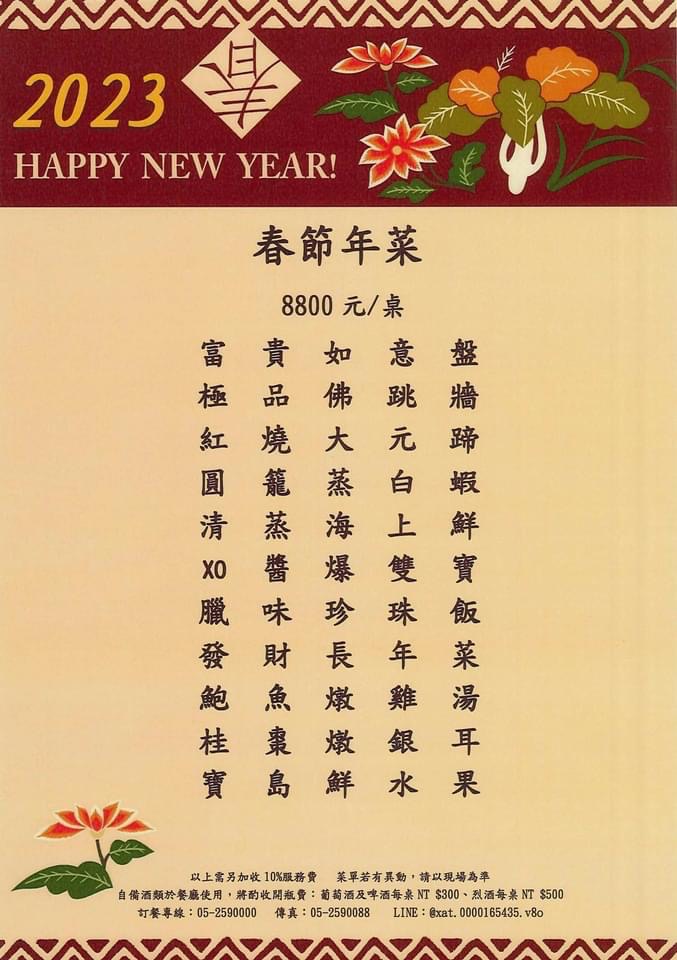 2023
春
HAPPY NEW YEAR!
春節年菜
8800 元/桌
富貴如意盤
極品佛跳牆
紅燒大元蹄
圓籠蒸白蝦
清蒸海上鮮
XO醬爆雙寶
臘味珍珠飯
發財長年菜
鮑魚燉雞湯
桂棗燉銀耳
寶島鮮水果
以上需另加收10%服務費 菜單若有異動，請以現場為準
自備酒類於餐廳使用，將酌收開瓶費：葡萄酒及啤酒每桌NT $300、烈酒每桌NT $500
訂餐專線：05-2590000 傳真：05-2590088 LINE：@xat.0000165435.v8o